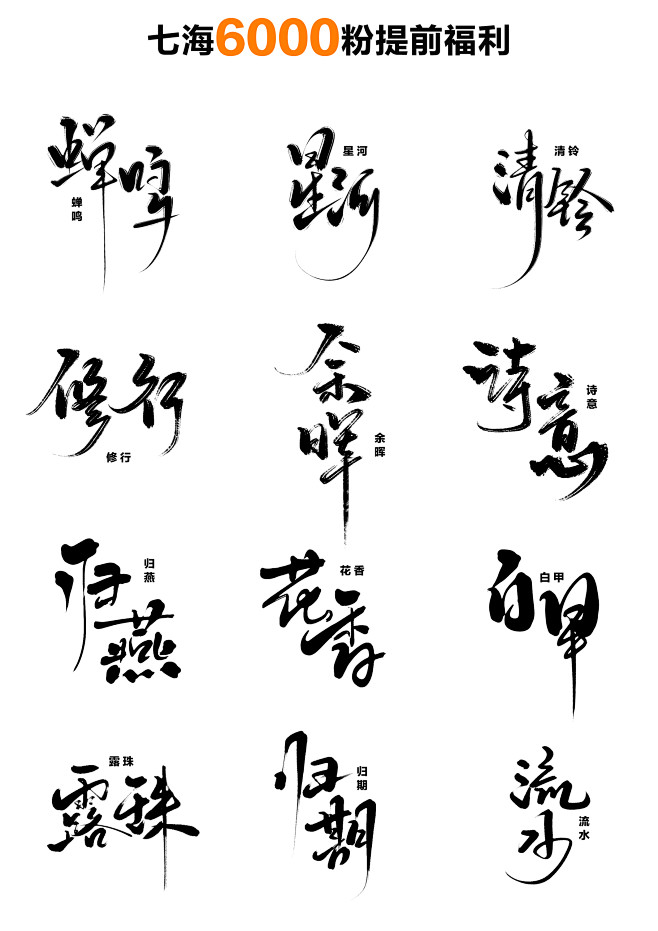 七海6000粉提前福利
蝉鸣
蝉鸣
星河
星河
清铃
清铃
修行
修行
余晖
余晖
诗意
诗意
归燕
归燕
花香
花香
白甲
白甲
露珠
露珠
归期
归期
流水
流水